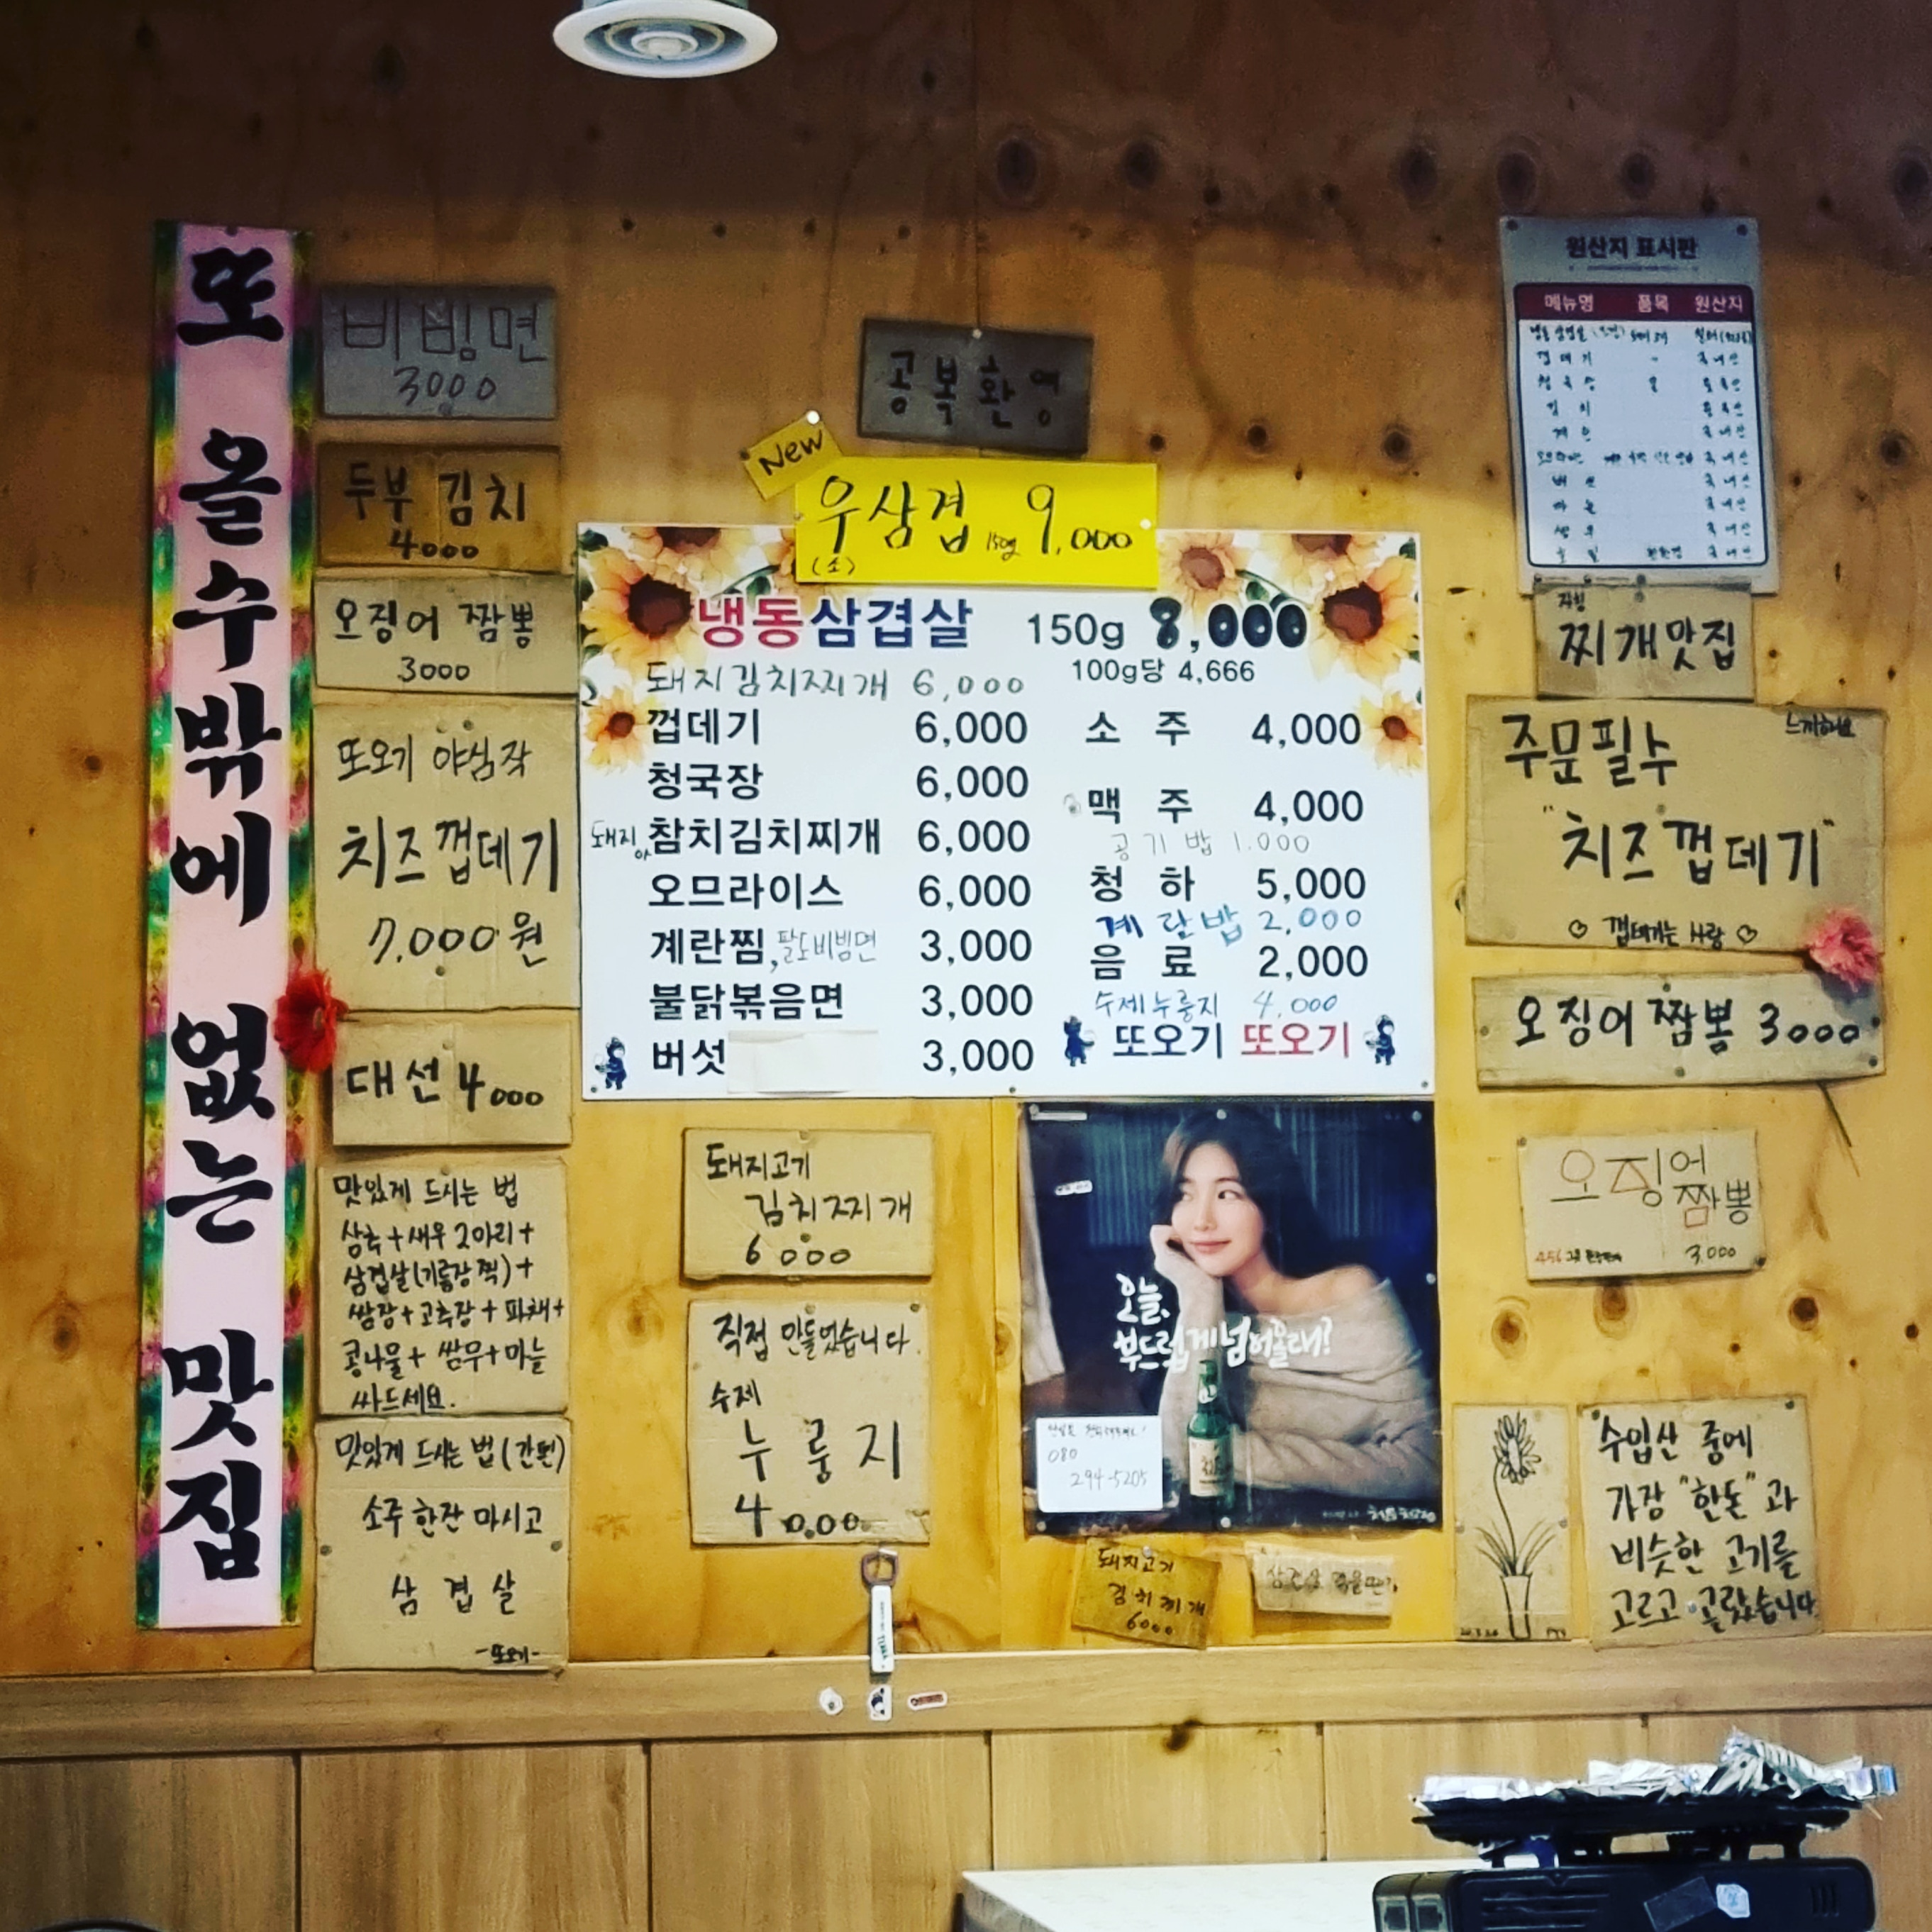 또 올수밖에 없는 맛집
비빔면
3000
두부 김치
4000
오징어 짬뽕
3000
또오기 야심작
치즈껍데기
7,000원
대선 4000
맛있게 드시는 법
상추+새우 2마리+
삼겹살(기름장 찍)+
쌈장+고추장+파채+
콩나물+쌈무+마늘
싸드세요.
맛있게 드시는 법(간편)
소주 한잔 마시고
삼겹살
-또오기-
공복환영
New
우삼겹 150g 9,000
(소)
냉동삼겹살 150g 8,000
100g당 4,666
돼지김치찌개 6,000
껍데기 6,000
청국장 6,000
돼지 참치김치찌개 6,000
오므라이스 6,000
계란찜, 팔도비빔면 3,000
불닭볶음면 3,000
버섯 3,000
소 주 4,000
맥 주 4,000
공기밥 1.000
청 하 5,000
계란밥 2,000
음 료 2,000
수제누룽지 4,000
또오기 또오기
돼지고기
김치찌개
6000
직접 만들었습니다.
수제
누룽지
4000
오늘,
부드럽게 넘어올래?
080
294-5205
처음처럼
돼지고기
김치찌개
6000
원산지 표시판
메뉴명 품목 원산지
껍데기 국내산
김치
계란 국내산
버섯 국내산
마늘 국내산
새우
자칭
찌개맛집
주문필수
느끼해요
"치즈껍데기"
♡ 껍데기는 사랑 ♡
오징어 짬뽕 3000
오징어
짬뽕
456
3,000
수입산 중에
가장 "한돈"과
비슷한 고기를
고르고 골랐습니다